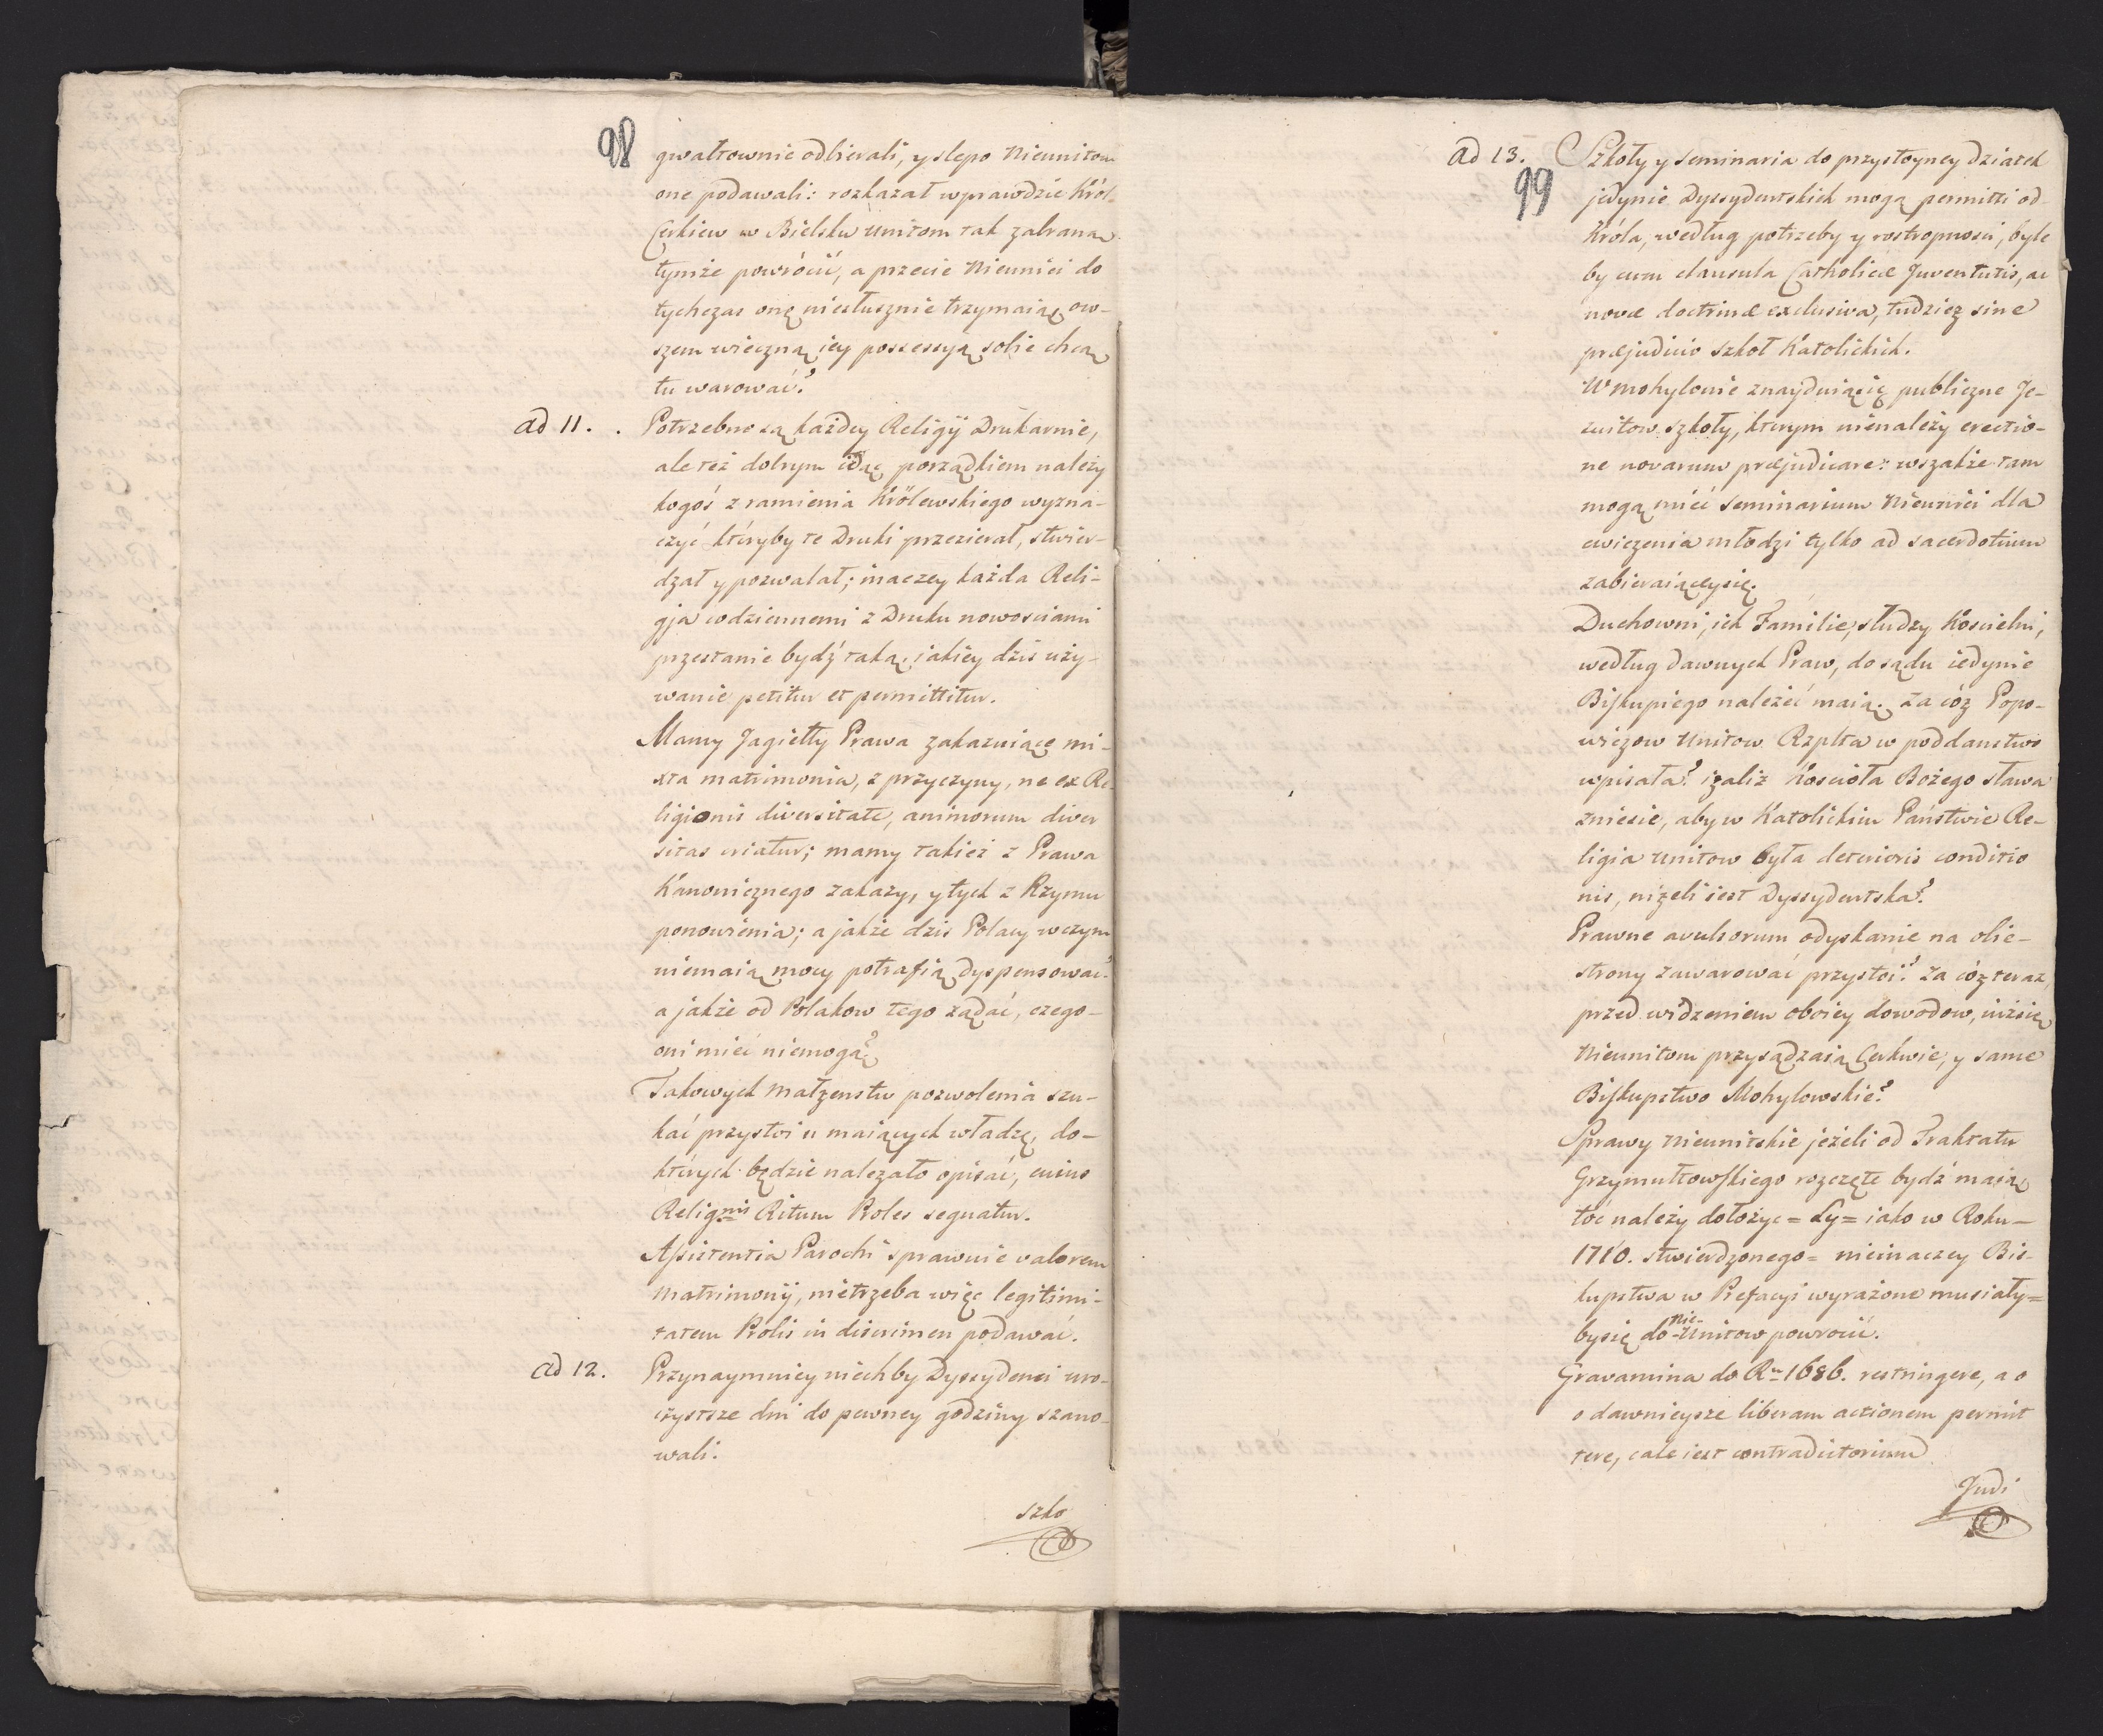 98
gwałtownie odbierali, y slepo Nieunitom
one podawali: rozkazał wprawdzie Król
Cerkiew w Bielsku Unitom tak zabraną
tymże powrócić, a przecie Nieunici do
tychczas onę niesłusznie trzymaią, ow-
szem wieczną iey possessyą sobie chcą
tu warować?
ad 11. . Potrzebne są każdey Religij Drukarnie,
ale też dobrym idąc porządkiem należy
kogoś z ramienia Królewskiego wyzna-
czyć któryby te Druki przezierał, stwier-
dzał y pozwalał; inaczey każda Reli-
gja codziennemi z Druku nowosciami
przestanie bydź taką, iakiey dzis uży-
wanie petitur et permittitur.
Mamy Jagiełły Prawa zakazuiące mi-
xta matrimonia, z przyczyny, ne ex Re-
ligionis diversitate, animorum diver
sitas oriatur; mamy takież z Prawa
Kanonicznego zakazy, y tych z Rzymu
ponowienia; a jakże dzis Polacy w czym
niemaią mocy potrafią dyspensować?
a jakże od Polakow tego żądać, czego-
oni mieć niemogą?
Takowych Małzenstw pozwolenia szu-
kać przystoi u maiących władzę, do-
których będzie należało opisać, cuius
Relignis Ritum Proles sequatur.
Assistentia Parochi sprawuie valorem
Matrimonij, nietrzeba więc legitimi-
tatem Prolis in discrimen podawać.
ad 12. Przynaymniey niechby Dyssydenci uro-
czystsze dni do pewney godziny szano-
wali.
szko
ad 13. Szkoły y Seminaria do przystoyney dziatek
99
jedynie Dyssydentskich mogą permitti od-
Króla, według potrzeby y rostropnosci, byle
by cum clausula Catholicæ Juventutis, ac
novæ doctrinæ exclusiva, tudziez sine
præjudicio szkoł Katolickich.
W Mohylowie znayduiąsię publiczne Je-
zuitow szkoły, którym nienależy erectio-
ne novarum præjudicare: wszakże tam
mogą mieć Seminarium Nieunici dla
cwiczenia młodzi tylko ad sacerdotium
zabieraiąceysię.
Duchowni, ich Familie, słudzy Koscielni,
według dawnych Praw, do sądu iedynie
Biskupiego należeć maią. Za cóż Popo-
wiczow Unitow Rzplta w poddanstwo
wpisała? izaliż Koscioła Bożego sława
zniesie, aby w Katolickim Państwie Re-
ligia Unitow była deterioris conditio
nis, niżeli iest Dyssydentska?
Prawne avulsorum odyskanie na obie-
strony zawarować przystoi? Za cóż teraz
przed widzeniem oboiey dowodow, iużsię
Nieunitom przysądzaią Cerkwie, y same
Biskupstwo Mohylowskie?
Sprawy Nieunitskie jeżeli od Traktatu
Grzymułtowskiego rozczęte bydź maią
toć należy dołożyc = Ly = iako w Roku-
1710. stwierdzonego = nieinaczey Bis-
kupstwa w Prefacyi wyrażone musiały=
nie-
bysię do Unitow powrocić.
Gravamina do Ru 1686. restringere, a o
o dawnieysze liberam actionem permit
tere, całe iest contradictorium
Judi